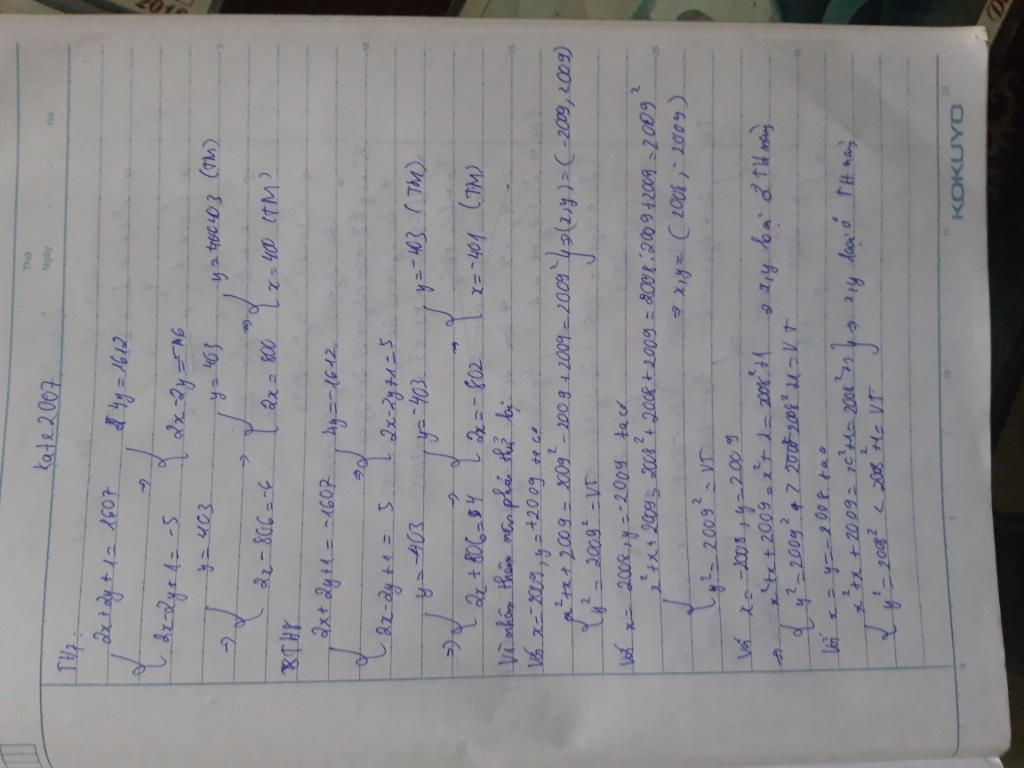 2019
Thứ
Ngày
No
Kate2007
TH7:
{ 2x+2y+1=1607
{ 2x-2y+1=-5
=> { 4y=1612
{ 2x-2y=-6
=> { y=403
{ 2x-806=-6
=> { y=403
{ 2x=800
=> { y=403 (TM)
{ x=400 (TM)
TH8
{ 2x+2y+1=-1607
{ 2x-2y+1=5
=> { 4y=-1612
{ 2x-2y+1=5
=> { y=-403
{ 2x+806=4
=> { y=-403
{ 2x=-802
=> { y=-403 (TM)
{ x=-401 (TM)
Vì nhân thầm nên phải thử lại
Với x=-2009, y=+2009 ta có
{ x²+x+2009=2009²-2009+2009=2009²
{ y²=2009²=VT } => (x,y)=(-2009,2009)
Với x=2008, y=-2009 ta có
{ x²+x+2009=2008²+2008+2009=2008.2009+2009=2009²
{ y²=2009²=VT => x,y=(2008,-2009)
Với x=-2008, y=2009
=> { x²+x+2009=x²+1=2008²+1 => x,y loại ở TH này
{ y²=2009²>2008²+1=VT
Với x=y=-2008 ta có
{ x²+x+2009=x²+1=2008²+1
{ y²=2008²<2008²+1=VT } => x,y loại ở TH này
KOKUYO